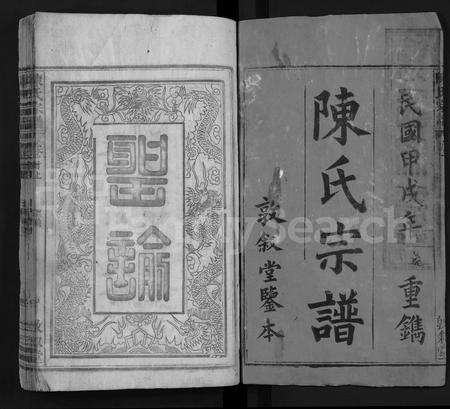 民國甲戌年
重鐫
陳氏宗譜
敦敘堂鑒本
聖諭
FamilySearch